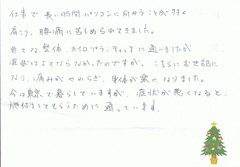 仕事で長い時間パソコンに向かうことが多く
肩こり、腰痛に苦しめられてきました。
色々な整体、カイロプラクティックに通いましたが
症状はよくならなかったのですが、こちらにお世話に
なり、痛みがやわらぎ、身体が楽になりました。
今は東京で暮らしていますが、症状が悪くなると、
施術をしてもらうために通っています。